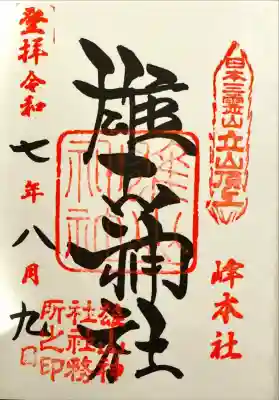 日本三霊山立山頂上
峰本社
雄山神社
雄山神社
雄山神社社務所之印
登拝令和七年八月九日